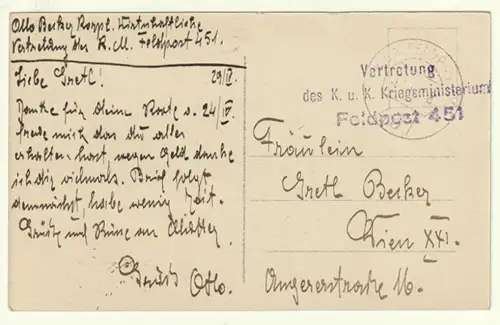 Otto Becker Korpl. Wirtschaftliche
Vertretung des K. M. Feldpost 451.
29/IV.
Liebe Gretl!
Danke für Deine Karte v. 24/IV.
freue mich das du alles
erhalten hast, wegen Geld danke
ich dir vielmals. Brief folgt
demnächst, habe wenig Zeit.
Grüße und Küsse an
Gruß Otto.
Vertretung
des K. u. K. Kriegsministerium
Feldpost 451
Fräulein
Gretl Becker
Wien XXI.
Angererstraße 16.